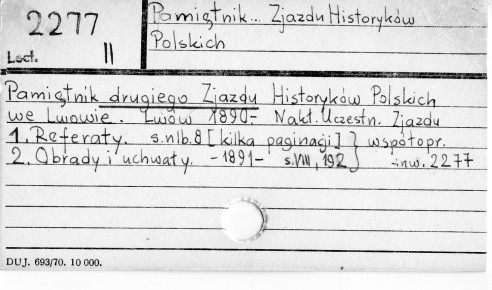 2277
Lsct. II
Pamiętnik... Zjazdu Historyków
Polskich
Pamiętnik drugiego Zjazdu Historyków Polskich
we Lwowie. Lwów 1890- Nakł. Uczestn. Zjazdu
1. Referaty. s.nlb. 8 [kilka paginacji] } współopr.
2. Obrady i uchwały. -1891- s. VIII, 192 } inw. 2277
DUJ. 693/70. 10 000.